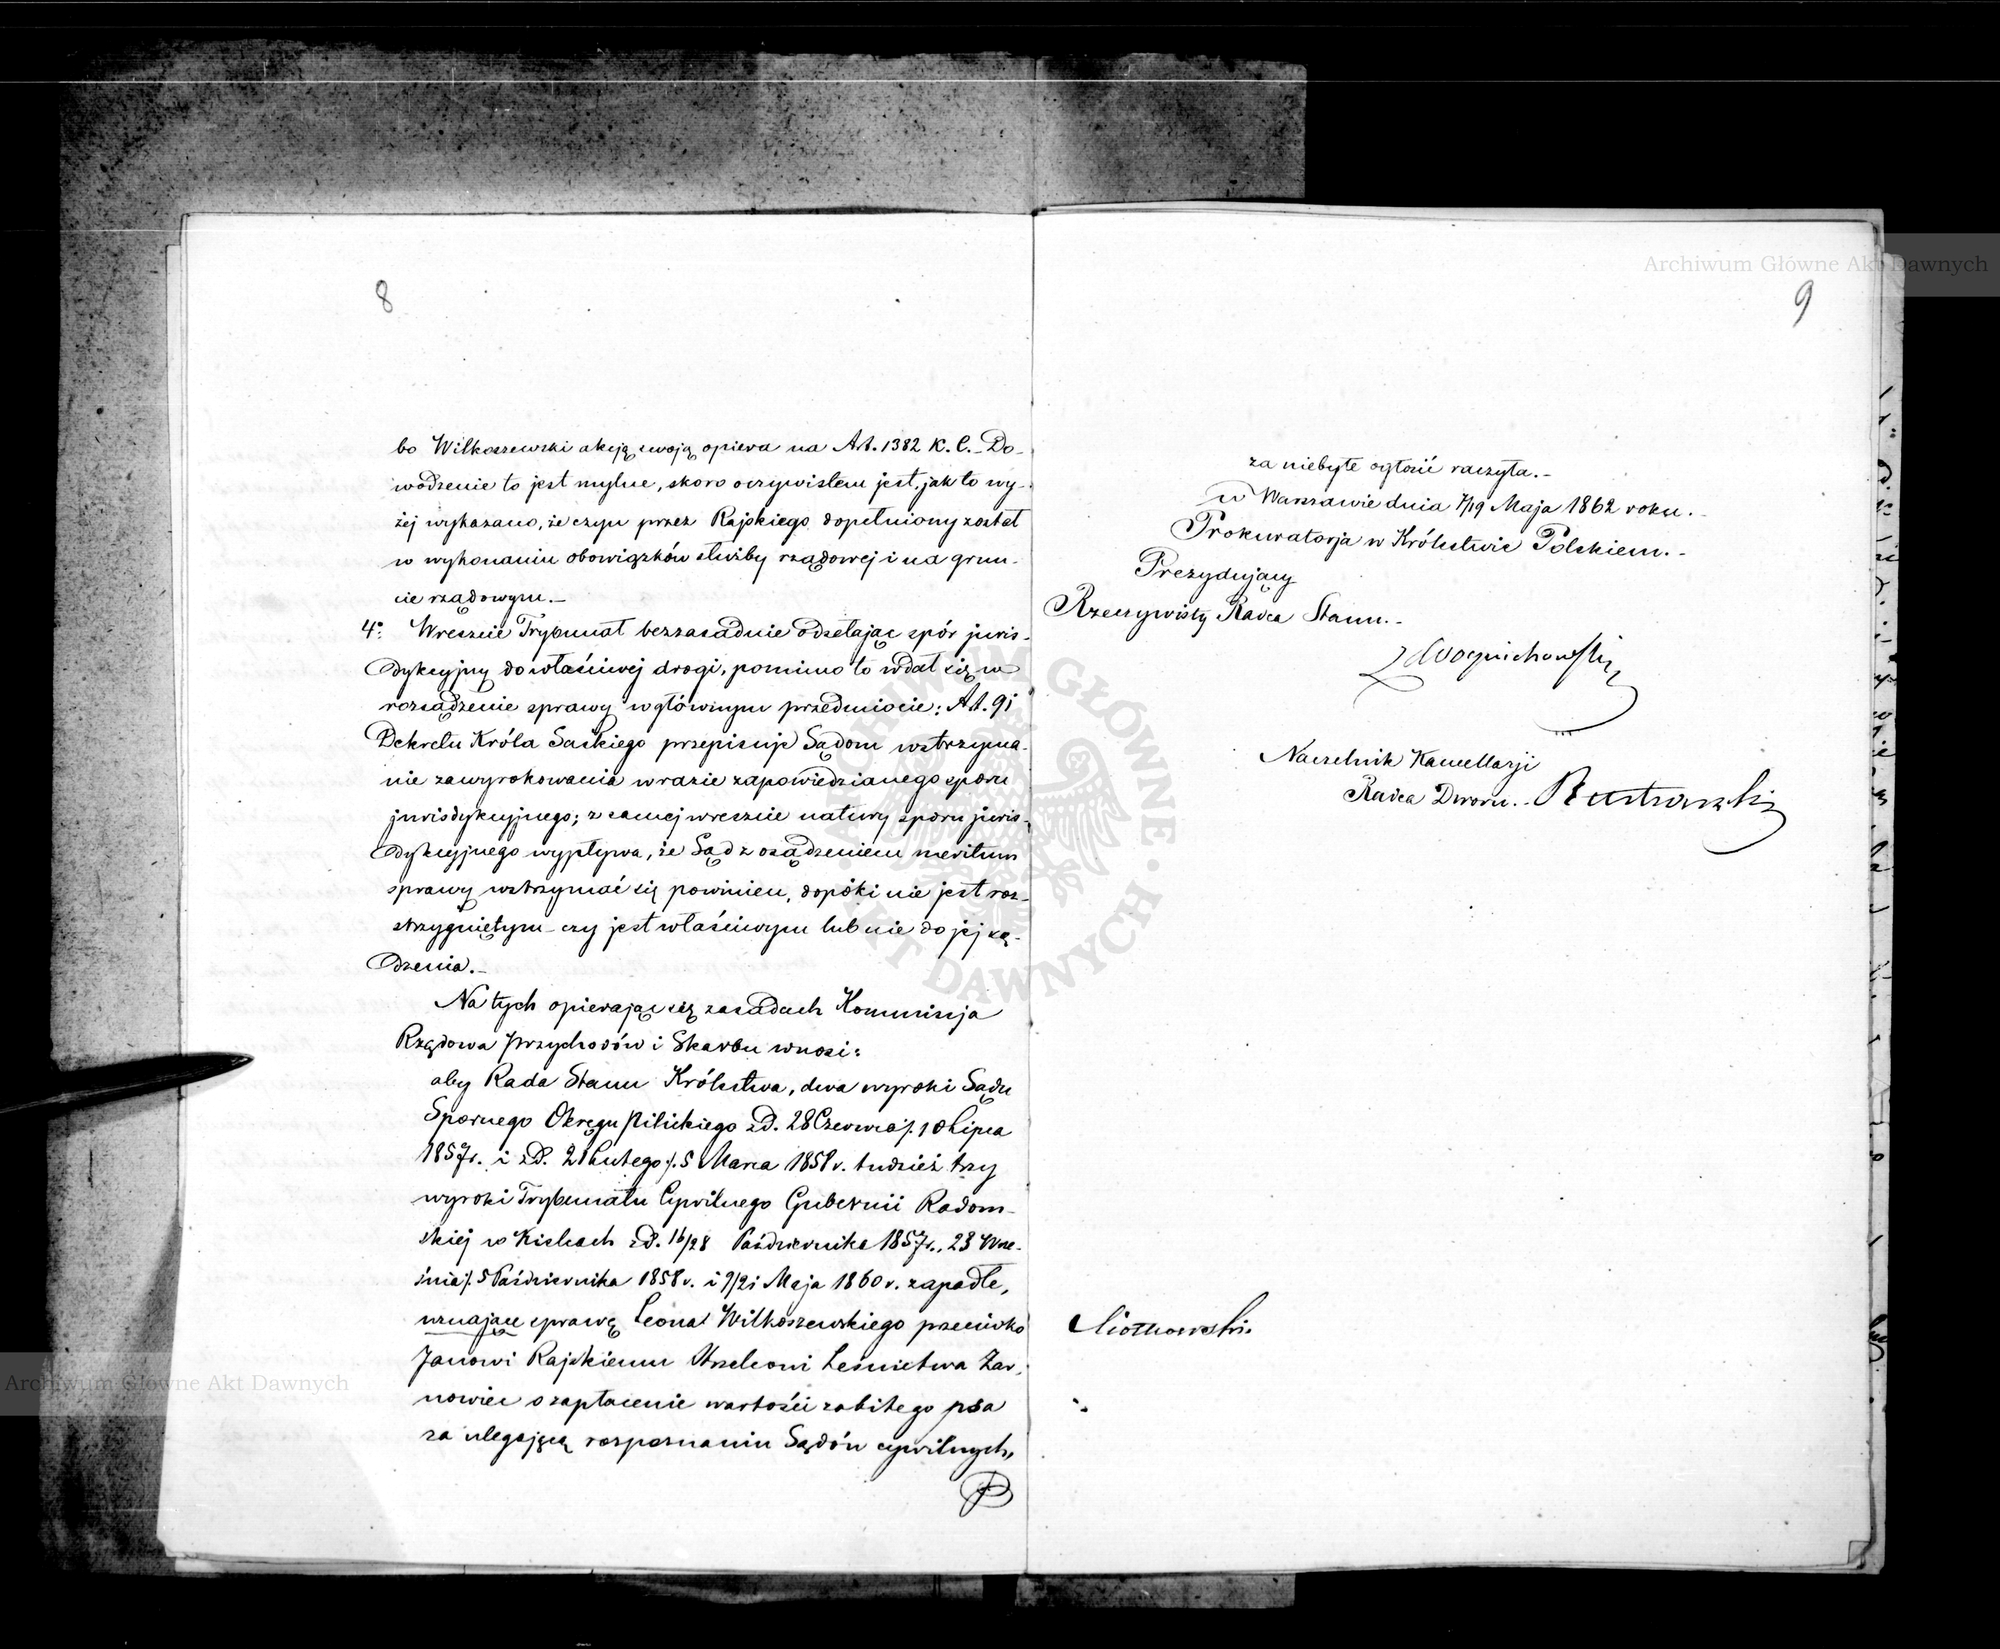 8
bo Wilkoszewski akcją swoją opiera na Art. 1382 K. C. – Do-
wodzenie to jest mylne, skoro oczywistem jest, jak to wy-
żej wykazano, że czyn przez Rajskiego dopełniony został
w wykonaniu obowiązków służby rządowej i na grun-
cie rządowym. –
4o: Wreszcie Trybunał bezzasadnie odsełając spór juris-
dykcyjny do właściwej drogi, pomimo to wdał się w
rozsądzenie sprawy w głównym przedmiocie; Art. 91
Dekretu Króla Saskiego przepisuje Sądom wstrzyma-
nie zawyrokowania w razie zapowiedzianego sporu
jurisdykcyjnego; z samej wreszcie natury sporu juris-
dykcyjnego wypływa, że Sąd z osądzeniem meritum
sprawy wstrzymać się powinien, dopóki nie jest roz-
strzygniętym – czy jest właściwym lub nie do jej są-
dzenia. –
Na tych opierając się zasadach Kommissja
Rządowa Przychodów i Skarbu wnosi:
aby Rada Stanu Królestwa, dwa wyroki Sądu
Spornego Okręgu Pilickiego z d. 28 Czerwca /. 10 Lipca
1857 r. i z d. 21 Lutego /. 5 Marca 1858 r. tudzież trzy
wyroki Trybunału Cywilnego Gubernii Radom-
skiej w Kielcach z d. 16/28 Października 1857 r., 23 Wrze-
śnia /. 5 Października 1858 r. i 9/21 Maja 1860 r. zapadłe,
uznające sprawę Leona Wilkoszewskiego przeciwko
Janowi Rajskiemu Strzelcowi Leśnictwa Żar-
nowiec o zapłacenie wartości zabitego psa
za ulegającą rozpoznaniu Sądów cywilnych,
9
za niebyłe ogłosić raczyła. –
w Warszawie dnia 7/19 Maja 1862 roku. –
Prokuratorja w Królestwie Polskiem. –
Prezydujący
Rzeczywisty Radca Stanu. –
Woynichowski
Naczelnik Kancellarji
Radca Dworu. –
Archiwum Główne Akt Dawnych
Archiwum Główne Akt Dawnych
ARCHIWUM GŁÓWNE AKT DAWNYCH